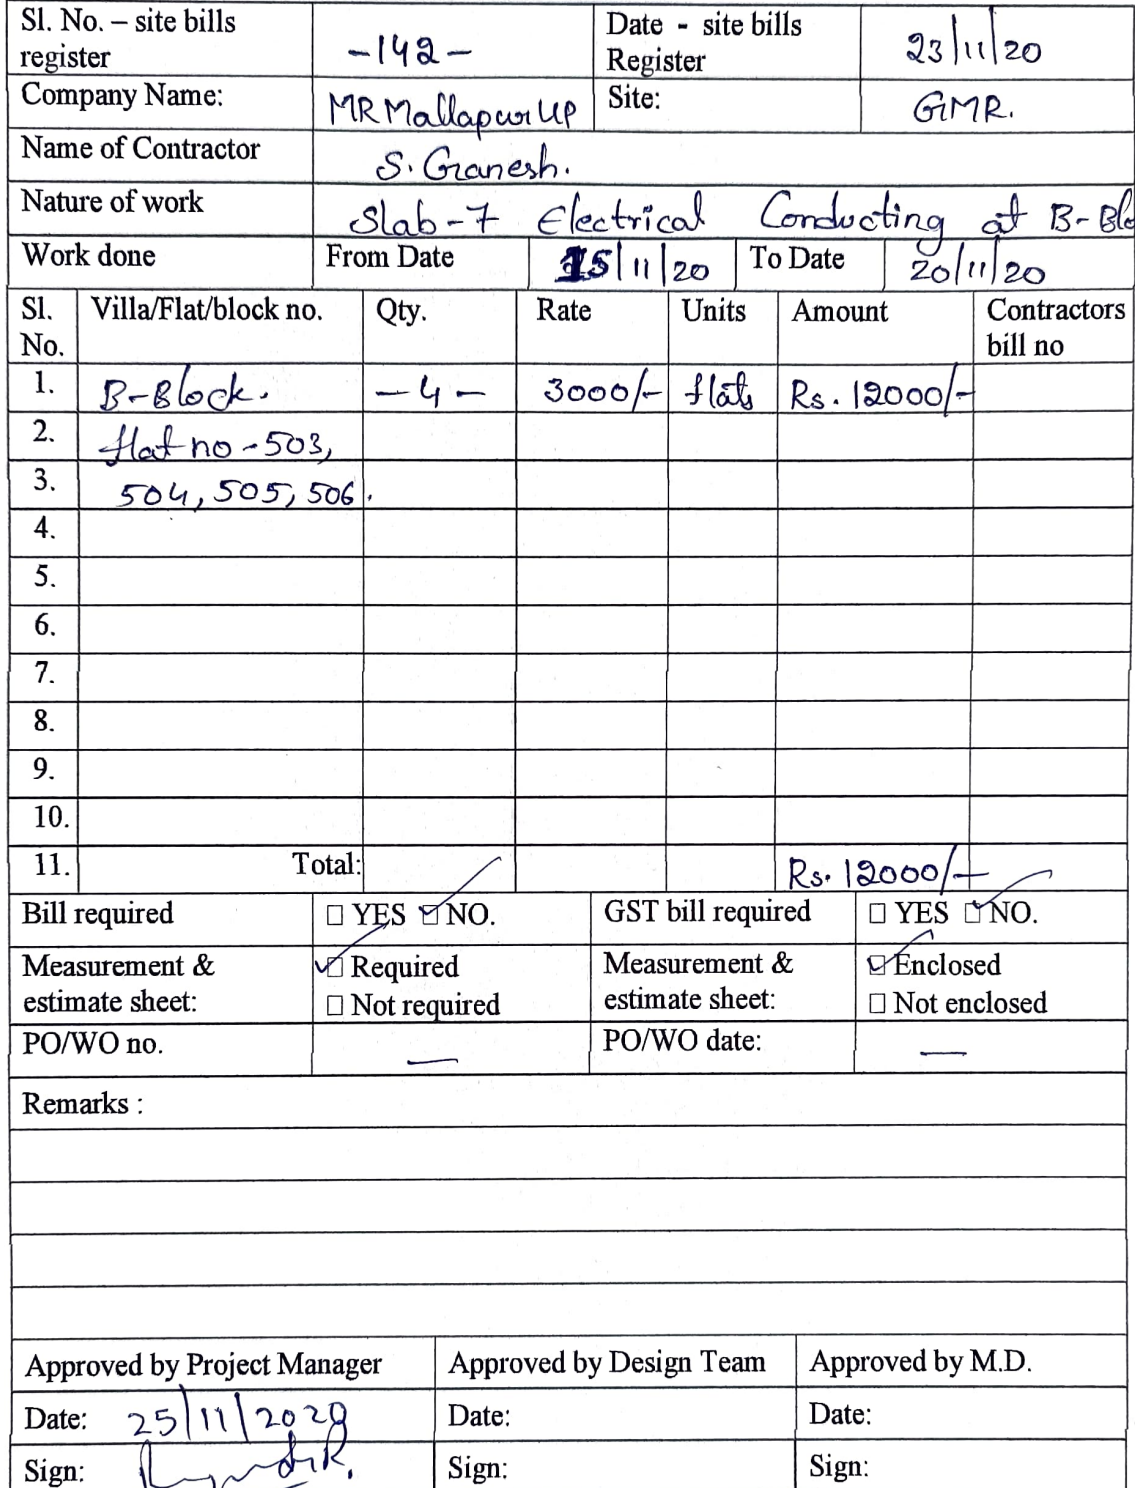 Sl. No. – site bills register -142- Date - site bills Register 23/11/20
Company Name: MR Mallapur UP Site: GMR.
Name of Contractor S. Ganesh.
Nature of work Slab-7 Electrical Conducting at B-Blo
Work done From Date 15/11/20 To Date 20/11/20
Sl. No. Villa/Flat/block no. Qty. Rate Units Amount Contractors bill no
1. B-Block. -4- 3000/- flats Rs. 12000/-
2. flat no - 503,
3. 504, 505, 506.
4.
5.
6.
7.
8.
9.
10.
11. Total: Rs. 12000/-
Bill required ☐ YES ☑ NO. GST bill required ☐ YES ☑ NO.
Measurement & estimate sheet: ☑ Required ☐ Not required Measurement & estimate sheet: ☑ Enclosed ☐ Not enclosed
PO/WO no. — PO/WO date: —
Remarks :
Approved by Project Manager Approved by Design Team Approved by M.D.
Date: 25/11/2020 Date: Date:
Sign: Sign: Sign: